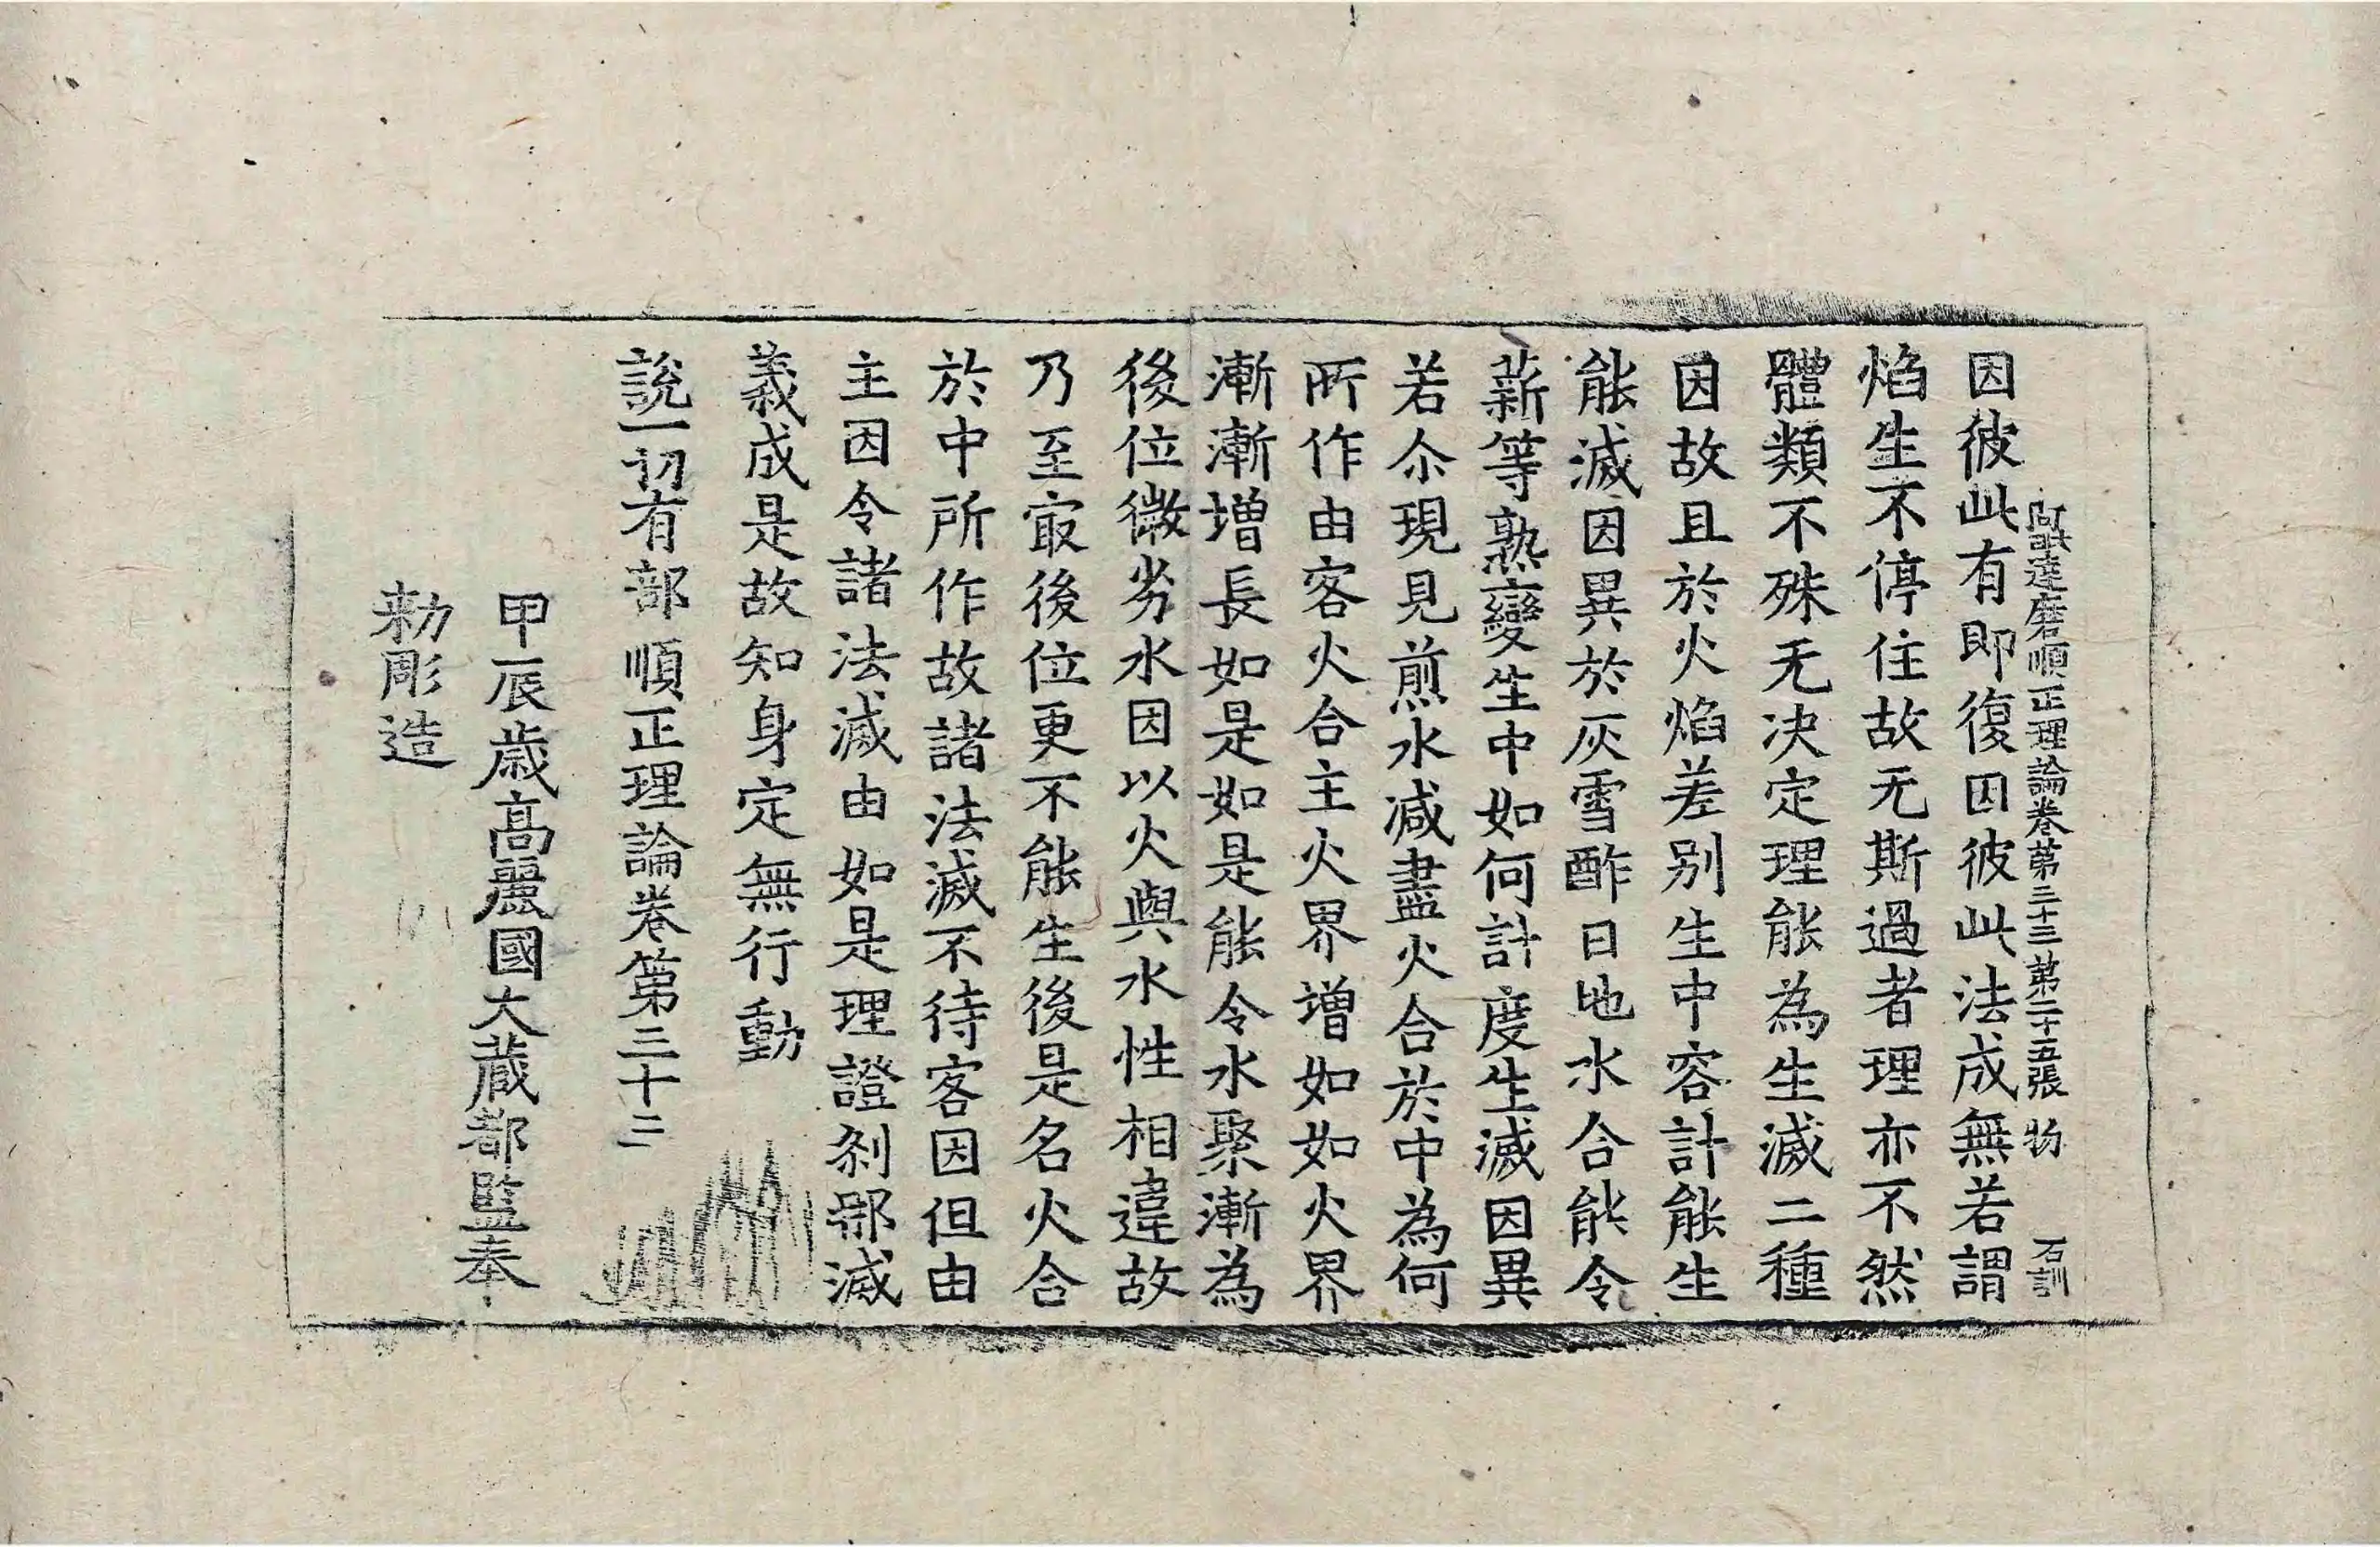 阿毗達磨順正理論卷第三十三 第二十五張 物 石訓
因彼此有即復因彼此法成無若謂
焰生不停住故无斯過者理亦不然
體類不殊无决定理能為生滅二種
因故且於火焰差别生中容計能生
能滅因異於灰雪酢日地水合能令
薪等熟變生中如何計度生滅因異
若尒現見煎水减盡火合於中為何
所作由客火合主火界增如如火界
漸漸增長如是如是能令水聚漸為
後位微劣水因以火與水性相違故
乃至㝡後位更不能生後是名火合
於中所作故諸法滅不待客因但由
主因令諸法滅由如是理證剎那滅
義成是故知身定無行動
說一切有部順正理論卷第三十三
甲辰歲高麗國大藏都監奉
勅彫造